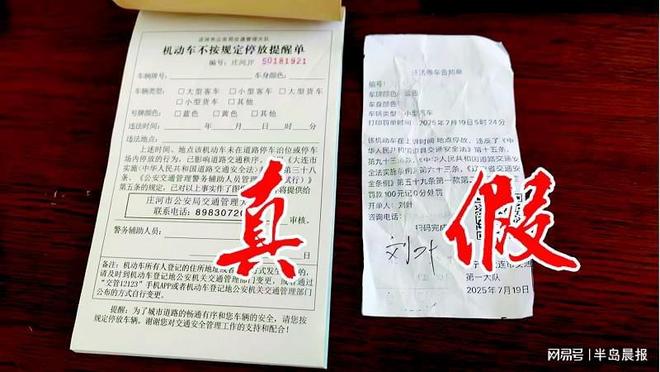 庄河市公安局交通管理大队
机动车不按规定停放提醒单
编号：庄河JP 50181921
车辆牌号： 车身颜色：
车辆类型： □大型客车 □小型客车 □大型货车
□小型货车 □其他
号牌颜色： □蓝色 □黄色 □其他
违法时间： 年 月 日 时 分
违法地点：
上述时间、地点该机动车未在道路停车泊位或停车
场内停放的行为，已影响道路交通秩序，
《大连市
实施〈中华人民共和国道路交通安全法〉
第三十八
条、《公安交通管理警务辅助人员管理
行）》
第五条的规定，已对以上事实作了图
将提供给
庄河市公安局交通管理大
联系电话：8983072
审核。
警务辅助人员：
年 月 日
备注：机动车所有人登记的住所地址或
方式发生
的，
请及时到机动车登记地公安机关交通管理部门
或通过
“交管12123”手机APP或者机动车登记地公安机关交通管理部门
公布的方式自行变更。
提醒：为了城市道路的畅通有序和您车辆的安全，请您按
规定停放车辆。谢谢您对交通安全管理工作的支持和配合！
真
违法停车告知单
编号：
车牌颜色：蓝色
车身颜色：
车辆类型：小型汽车
打印告单时间：2025年7月19日5时24分
该机动车在上述时间 地点停放，违反了《中
华人民共和国道路交通安全法》第十五条、
第九十三条
《中华人民共和国道路交通安
全法实施条例》第六十三条、
交通安全
条例》第五十九条第一款第
罚款100元记0分处罚
开单人：刘叶
咨询电话：
扫码完成
刘叶
大连市交通
第一大队
2025年7月19日
假
网易号 | 半岛晨报